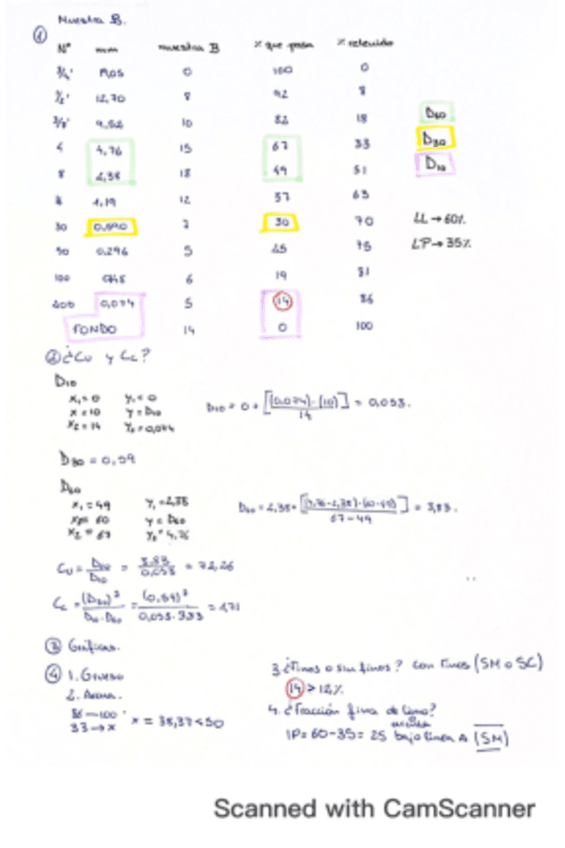 Muestra B.
①
Nº mm muestra B % que pasa % retenido
3/4" 19,05 0 100 0
1/2" 12,70 8 92 8
3/8" 9,52 10 82 18
4 4,76 15 67 33
8 2,38 18 49 51
1,19 12 37 63
30 0,590 7 30 70
50 0,296 5 25 75
100 6 19 81
200 0,074 5 14 86
FONDO 14 0 100
D60
D30
D10
LL → 60%
LP → 35%
② ¿Cu y Cc?
D10
x1 = 0 y1 = 0
x = 10 y = D10
x2 = 14 y2 = 0,074
D10 = 0 + [(0,074)·(10)/14] = 0,053.
D30 = 0,59
D60
x1 = 49 y1 = 2,38
x = 60 y = D60
x2 = 67 y2 = 4,76
D60 = 2,38 + [(4,76-2,38)·(60-49)/67-49] = 3,83.
Cu = D60/D10 = 3.83/0,053 = 72,26
Cc = (D30)²/D10·D60 = (0,59)²/0,053·3.83 = 1,71
③ Gráficas.
④ 1. Grueso
2. Arena.
86 — 100
33 → x x = 38,37 < 50
3. ¿Finos o sin finos? Con finos (SM o SC)
14 > 12%
4. ¿Fracción fina de limo?
arcilla
IP = 60-35 = 25 bajo línea A (SM)
Scanned with CamScanner